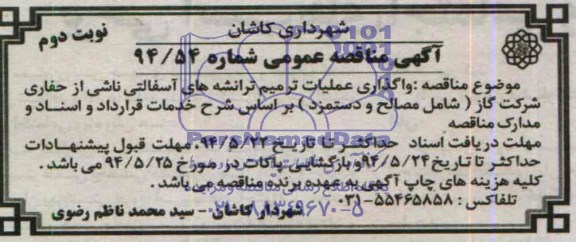 شهرداری کاشان
نوبت دوم
آگهی مناقصه عمومی شماره ۹۴/۵۴
موضوع مناقصه :واگذاری عملیات ترمیم ترانشه های آسفالتی ناشی از حفاری
شرکت گاز ( شامل مصالح و دستمزد ) بر اساس شرح خدمات قرارداد و اسناد و
مدارک مناقصه
مهلت دریافت اسناد حداکثر تا تاریخ ۹۴/۵/۲۲، مهلت قبول پیشنهادات
حداکثر تا تاریخ ۹۴/۵/۲۴ و بازگشایی پاکات در مورخ ۹۴/۵/۲۵ می باشد .
کلیه هزینه های چاپ آگهی به عهده برنده مناقصه می باشد .
تلفاکس : ۵۵۴۶۵۸۵۸-۰۳۱
شهردار کاشان - سید محمد ناظم رضوی
ParsNamadData